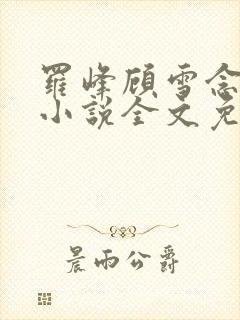 羅峰顧雪念
小說全文免
晨雨公爵